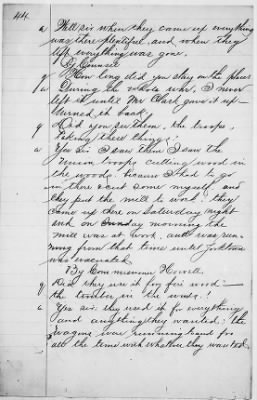 44
a Well sir when they came up everything
was there plentiful, and when they
left everything was gone.
By Counsel
q How long did you stay on the place
a During the whole war, I never
left it until Mr Clark gave it up
turned it back
q Did you see them, the troops,
taking these things?
a Yes sir I saw them I saw the
Union troops cutting wood in
the woods. because I had to go
in there & cut some myself, and
they put the mill to work. they
came up there on Saturday night
and on Sunday morning the
mill was at work, and was run-
ning from that time until Yorktown
was evacuated
By Commissioner Howell.
q Did they use it for fire wood -
the timber in the woods?
a Yes sir. they used it for everything
and anything they wanted. the
wagons was running hard for
all the time with whatever they wanted.